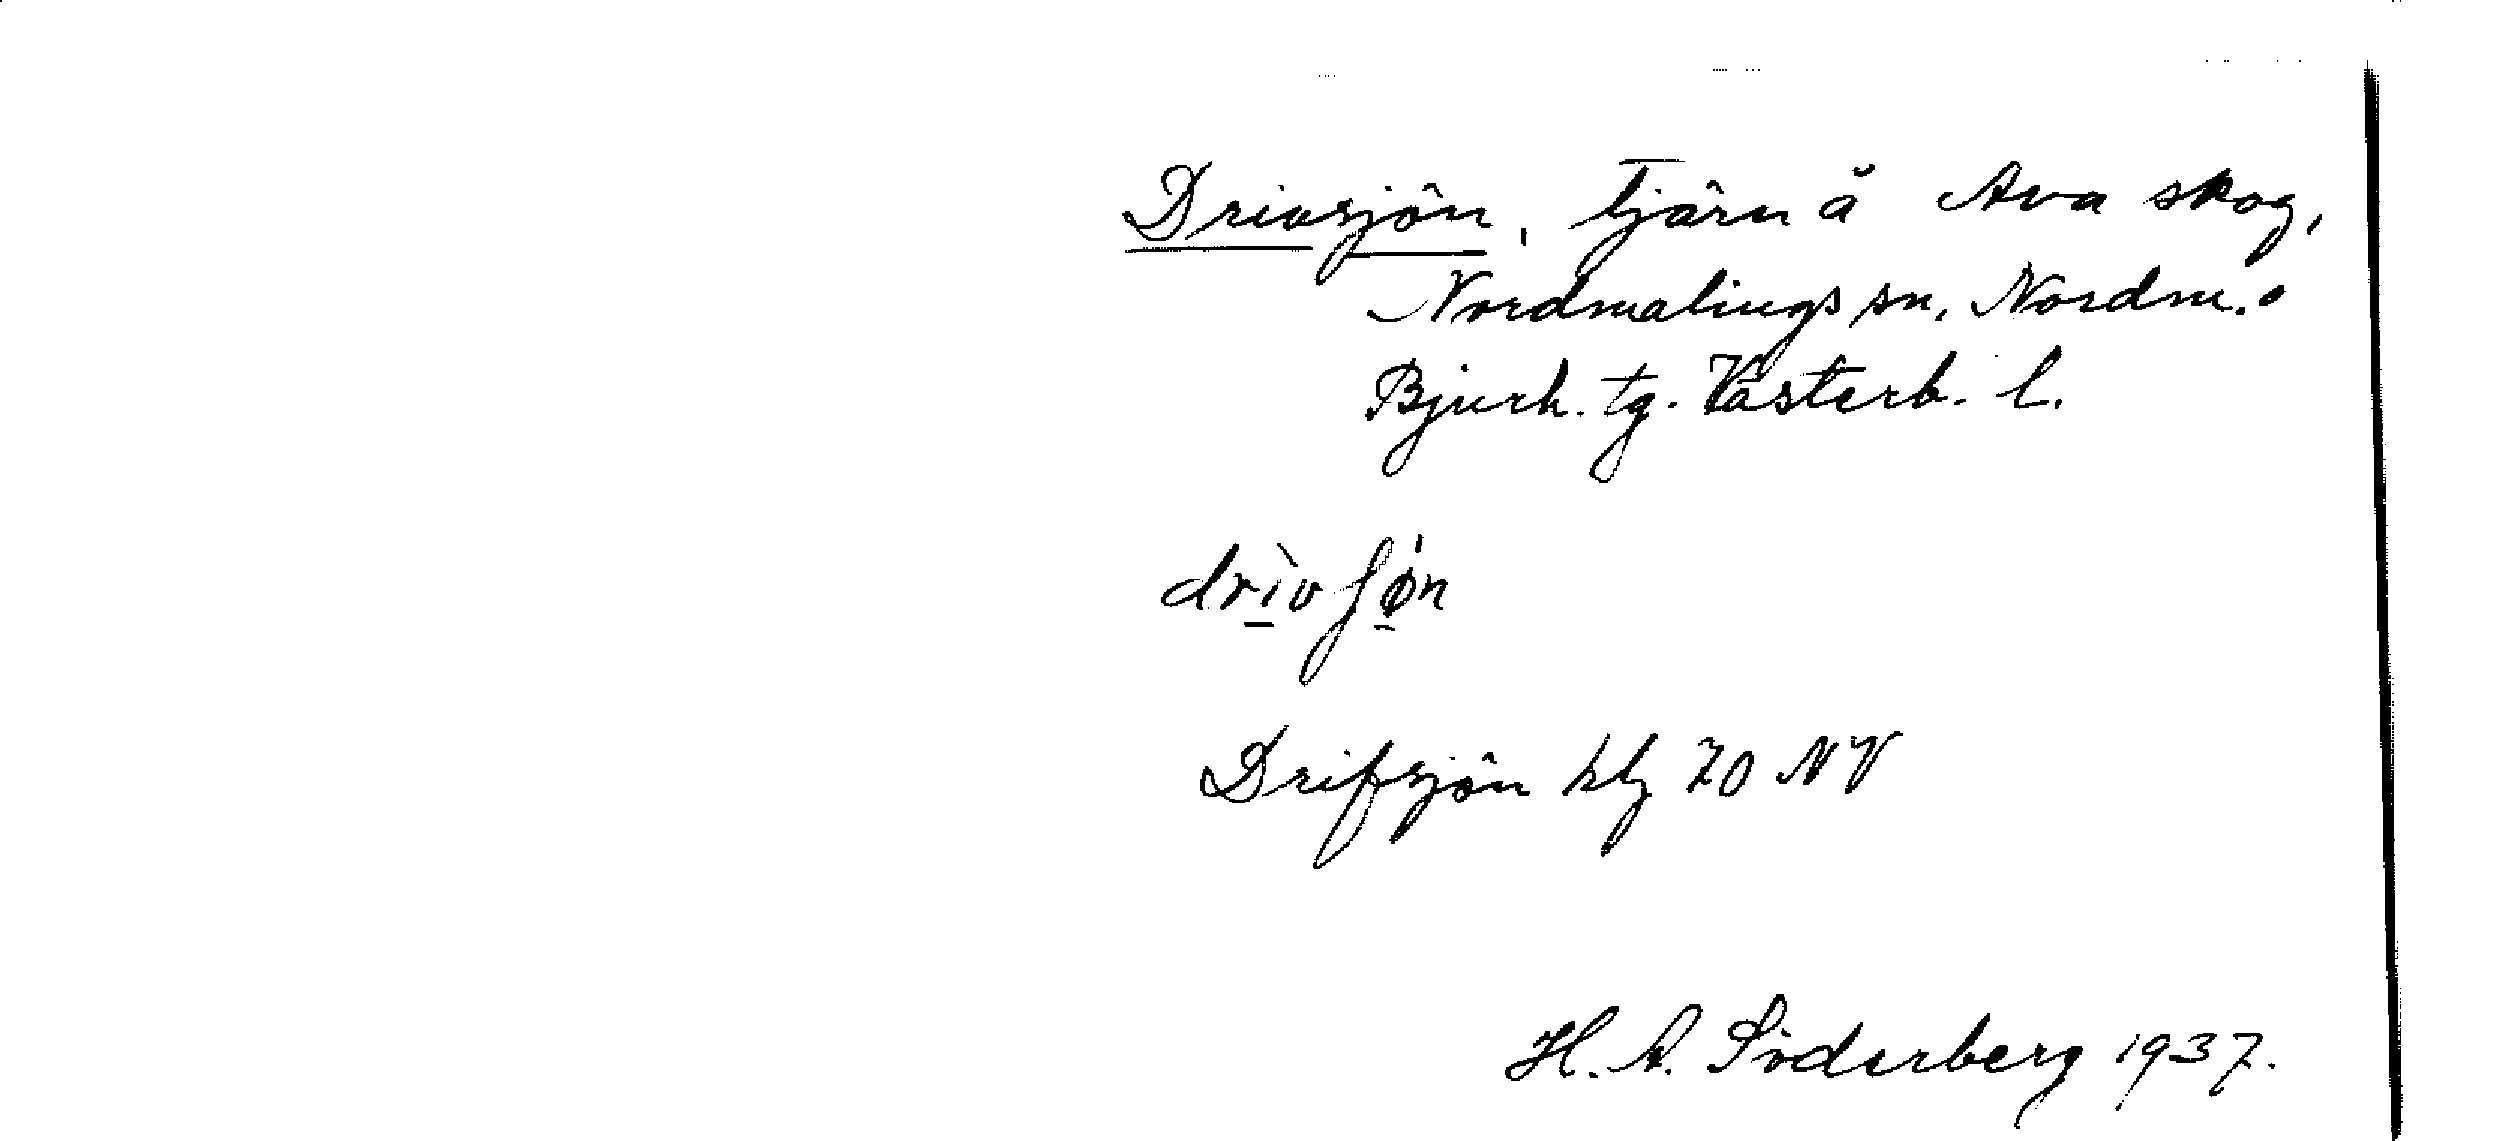 Drivsjön, Tjärn å Ava skog,
Nordmalings sn, Nordm. o
Bjurh. tg. Västerb. l.
drı̀vʃø̀n
Drifsjön bl 70 NV
H. A. Söderberg 1937.